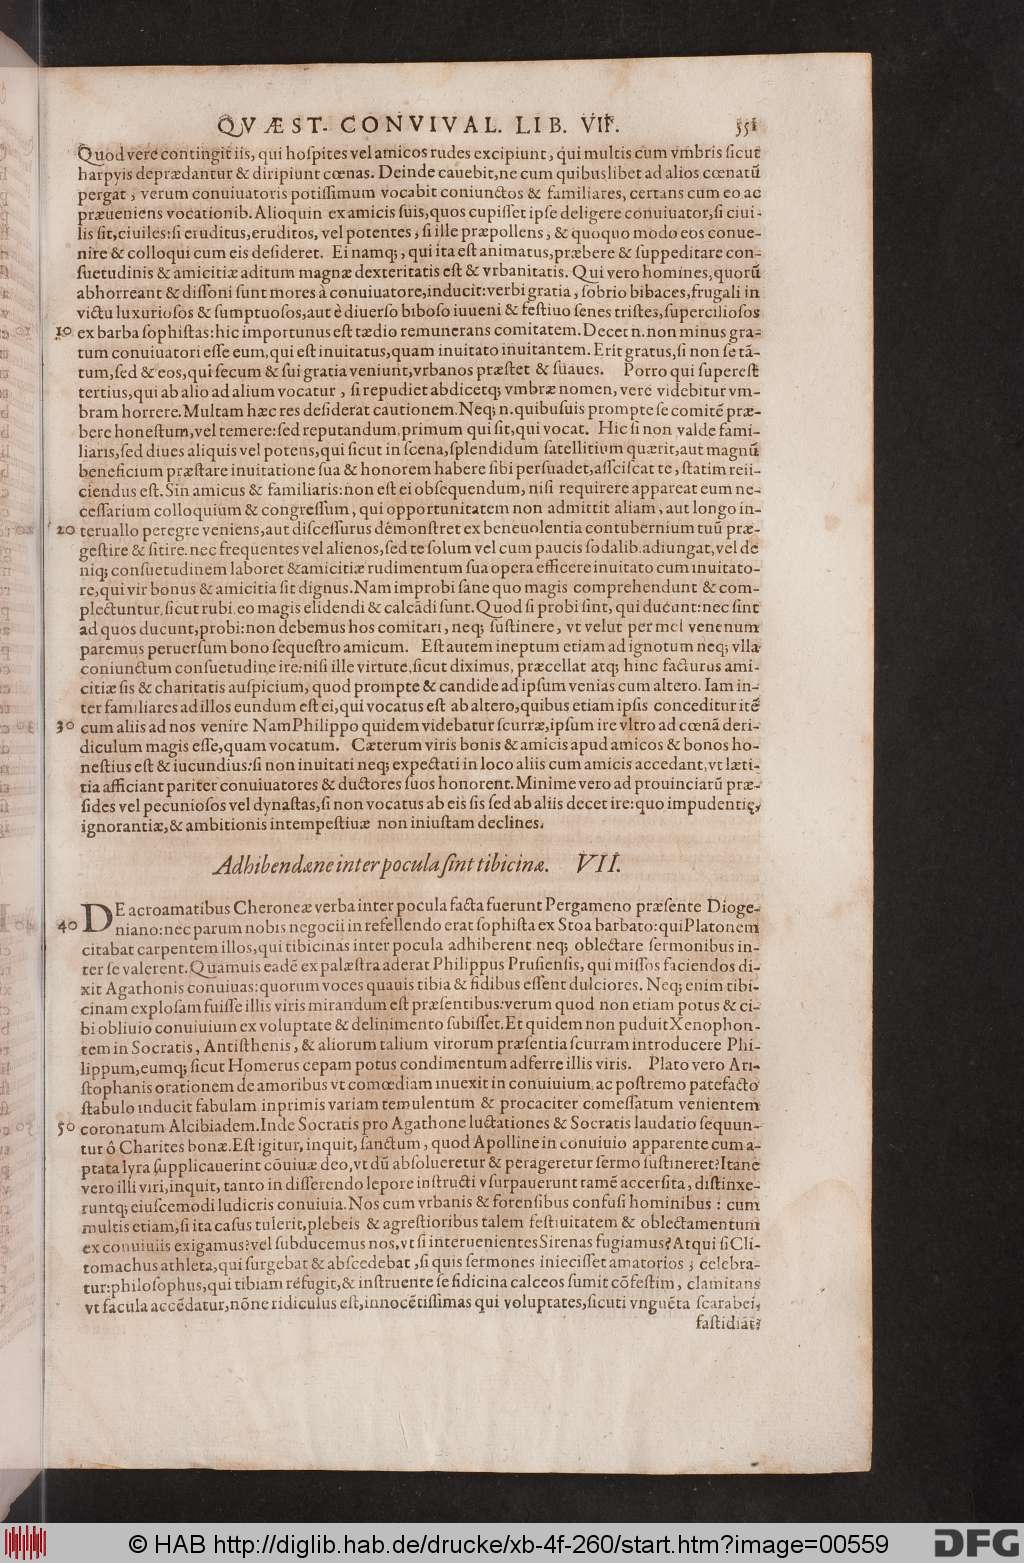 QVÆST. CONVIVAL. LIB. VII. 551
Quod vere contingit iis, qui hoſpites vel amicos rudes excipiunt, qui multis cum vmbris ſicut
harpyis deprædantur & diripiunt cœnas. Deinde cauebit, ne cum quibuslibet ad alios cœnatũ
pergat, verum conuiuatoris potiſſimum vocabit coniunctos & familiares, certans cum eo ac
præueniens vocationib. Alioquin ex amicis ſuis, quos cupiſſet ipſe deligere conuiuator, ſi ciui-
lis ſit, ciuiles: ſi eruditus, eruditos, vel potentes, ſi ille præpollens, & quoquo modo eos conue-
nire & colloqui cum eis deſideret. Ei namq;, qui ita eſt animatus, præbere & ſuppeditare con-
ſuetudinis & amicitiæ aditum magnæ dexteritatis eſt & vrbanitatis. Qui vero homines, quorũ
abhorreant & diſſoni ſunt mores à conuiuatore, inducit: verbi gratia, ſobrio bibaces, frugali in
victu luxurioſos & ſumptuoſos, aut è diuerſo biboſo iuueni & feſtiuo ſenes triſtes, ſupercilioſos
10 ex barba ſophiſtas: hic importunus eſt tædio remunerans comitatem. Decet n. non minus gra-
tum conuiuatori eſſe eum, qui eſt inuitatus, quam inuitato inuitantem. Erit gratus, ſi non ſe tã-
tum, ſed & eos, qui ſecum & ſui gratia veniunt, vrbanos præſtet & ſuaues. Porro qui ſupereſt
tertius, qui ab alio ad alium vocatur, ſi repudiet abdicetq; vmbræ nomen, vere videbitur vm-
bram horrere. Multam hæc res deſiderat cautionem. Neq; n. quibuſuis prompte ſe comitẽ præ-
bere honeſtum, vel temere: ſed reputandum primum qui ſit, qui vocat. Hic ſi non valde fami-
liaris, ſed diues aliquis vel potens, qui ſicut in ſcena, ſplendidum ſatellitium quærit, aut magnũ
beneficium præſtare inuitatione ſua & honorem habere ſibi perſuadet, aſſciſcat te, ſtatim reii-
ciendus eſt. Sin amicus & familiaris: non eſt ei obſequendum, niſi requirere appareat eum ne-
ceſſarium colloquium & congreſſum, qui opportunitatem non admittit aliam, aut longo in-
20 teruallo peregre veniens, aut diſceſſurus demonſtret ex beneuolentia contubernium tuũ præ-
geſtire & ſitire. nec frequentes vel alienos, ſed te ſolum vel cum paucis ſodalib. adiungat, vel de
niq; conſuetudinem laboret & amicitiæ rudimentum ſua opera efficere inuitato cum inuitato-
re, qui vir bonus & amicitia ſit dignus. Nam improbi ſane quo magis comprehendunt & com-
plectuntur, ſicut rubi, eo magis elidendi & calcãdi ſunt. Quod ſi probi ſint, qui ducunt: nec ſint
ad quos ducunt, probi: non debemus hos comitari, neq; ſuſtinere, vt velut per mel venenum
paremus peruerſum bono ſequeſtro amicum. Eſt autem ineptum etiam ad ignotum neq; vlla
coniunctum conſuetudine ire: niſi ille virtute, ſicut diximus, præcellat atq; hinc facturus ami-
citiæ ſis & charitatis auſpicium, quod prompte & candide ad ipſum venias cum altero. Iam in-
ter familiares ad illos eundum eſt ei, qui vocatus eſt ab altero, quibus etiam ipſis conceditur itẽ
30 cum aliis ad nos venire Nam Philippo quidem videbatur ſcurræ, ipſum ire vltro ad cœnã deri-
diculum magis eſſe, quam vocatum. Cæterum viris bonis & amicis apud amicos & bonos ho-
neſtius eſt & iucundius: ſi non inuitati neq; expectati in loco aliis cum amicis accedant, vt læti-
tia afficiant pariter conuiuatores & ductores ſuos honorent. Minime vero ad prouinciarũ præ-
ſides vel pecunioſos vel dynaſtas, ſi non vocatus ab eis ſis ſed ab aliis decet ire: quo impudentię,
ignorantiæ, & ambitionis intempeſtiuæ non iniuſtam declines.
Adhibendæne inter pocula ſint tibicinæ. VII.
DE acroamatibus Cheroneæ verba inter pocula facta fuerunt Pergameno præſente Dioge-
40 niano: nec parum nobis negocii in refellendo erat ſophiſta ex Stoa barbato: qui Platonem
citabat carpentem illos, qui tibicinas inter pocula adhiberent neq; oblectare ſermonibus in-
ter ſe valerent. Quamuis eadẽ ex palæſtra aderat Philippus Pruſienſis, qui miſſos faciendos di-
xit Agathonis conuiuas: quorum voces quauis tibia & fidibus eſſent dulciores. Neq; enim tibi-
cinam exploſam fuiſſe illis viris mirandum eſt præſentibus: verum quod non etiam potus & ci-
bi obliuio conuiuium ex voluptate & delinimento ſubiſſet. Et quidem non puduit Xenophon-
tem in Socratis, Antiſthenis, & aliorum talium virorum præſentia ſcurram introducere Phi-
lippum, eumq; ſicut Homerus cepam potus condimentum adferre illis viris. Plato vero Ari-
ſtophanis orationem de amoribus vt comœdiam inuexit in conuiuium, ac poſtremo patefacto
ſtabulo inducit fabulam inprimis variam temulentum & procaciter comeſſatum venientem
50 coronatum Alcibiadem. Inde Socratis pro Agathone luctationes & Socratis laudatio ſequun-
tur ô Charites bonæ. Eſt igitur, inquit, ſanctum, quod Apolline in conuiuio apparente cum a-
ptata lyra ſupplicauerint cõuiuæ deo, vt dũ abſolueretur & perageretur ſermo ſuſtineret? Itane
vero illi viri, inquit, tanto in diſſerendo lepore inſtructi vſurpauerunt tamẽ accerſita, diſtinxe-
runtq; eiuſcemodi ludicris conuiuia. Nos cum vrbanis & forenſibus confuſi hominibus: cum
multis etiam, ſi ita caſus tulerit, plebeis & agreſtioribus talem feſtiuitatem & oblectamentum
ex conuiuiis exigamus? vel ſubducemus nos, vt ſi interuenientes Sirenas fugiamus? Atqui ſi Cli-
tomachus athleta, qui ſurgebat & abſcedebat, ſi quis ſermones inieciſſet amatorios, celebra-
tur: philoſophus, qui tibiam refugit, & inſtruente ſe fidicina calceos ſumit cõfeſtim, clamitans
vt facula accẽdatur, nõne ridiculus eſt, innocẽtiſſimas qui voluptates, ſicuti vnguẽta ſcarabei,
faſtidiãt?
© HAB http://diglib.hab.de/drucke/xb-4f-260/start.htm?image=00559
DFG